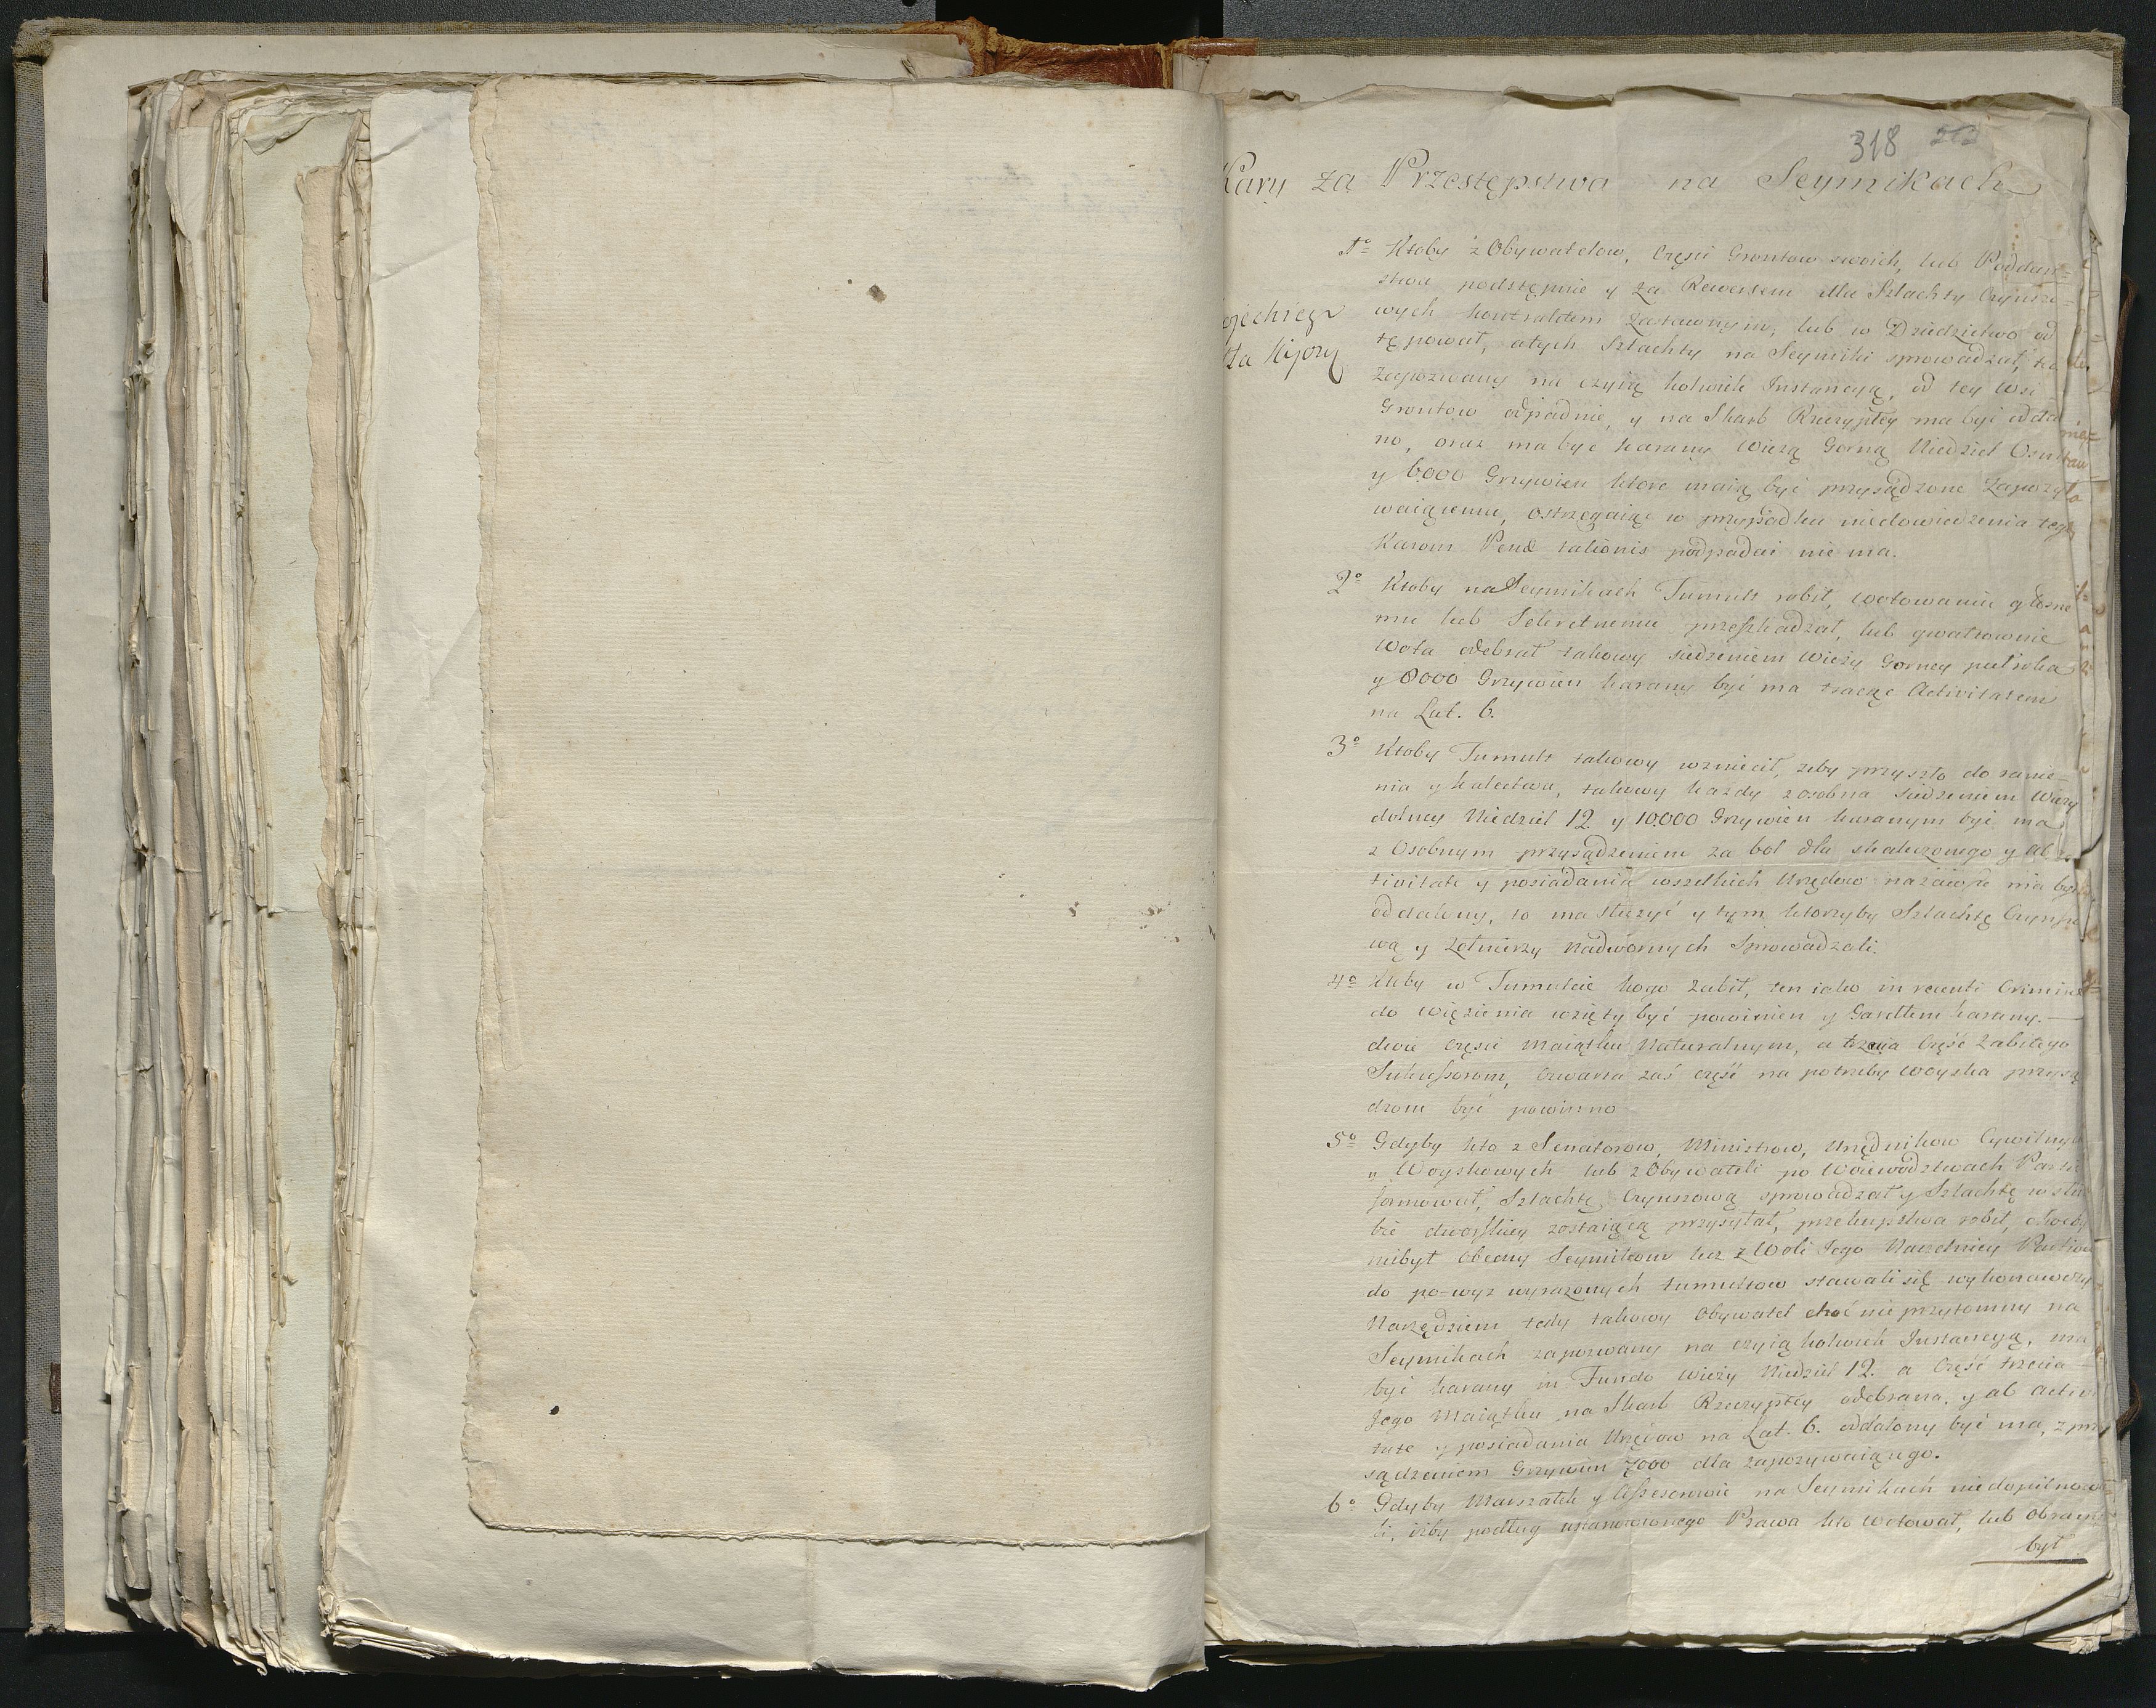 318 252
Kary za Przestępstwa na Seymikach
1º Ktoby z Obywatelow, Części Grontow swoich, lub Poddan=
stwa podstępnie y za Rewersem dla Szlachty Czynszo=
wych kontraktem Zastawnym, lub w Dziedzictwo od
stępował, a tych Szlachty na Seymiki sprowadzał, ten
Zapozwany na czyią kolwiek Instancyą, od tey Wsi
Grontow odpadnie, y na Skarb Rzeczyptey ma być odda
no, oraz ma być karany Wieżą Gorną Niedziel Osm
y 6000 Grzywien ktore maią być przysądzone Zapozy
waiącemu, ostrzegaiąc w przypadku niedowiedzenia tego
Karom Penæ talionis podpadać nie ma.
2º Ktoby na Seymikach Tumult robił, wotowaniu głosne
mu lub Sekretnemu przeszkadzał, lub gwałtownie
Wota odebrał takowy siedzeniem Wieży Gorney puł roka
y 8000 Grzywien karany być ma tracąc Activitatem
na Lat. 6.
3º Ktoby Tumult takowy wzniecił, żeby przyszło do ranie=
nia y kalectwa, takowy każdy z osobna siedzeniem Wieży
dolney Niedziel 12 y 10.000 Grzywien karanym być ma
z Osobnym przysądzeniem za bol dla skaliczonego y ab Ac
tivitate y posiadania wszelkich Urzędow na zawsze ma być
oddalony, to ma służyć y tym ktorzyby Szlachtę Czynszo
wą y Żołnierzy Nadwornych Sprowadzali.
4º Ktoby w Tumulcie kogo Zabił, ten iako in recenti Crimine
do więzienia wzięty być powinien y Gardłem karany.
dwie części Maiątku Naturalnym, a trzecia Część Zabitego
Sukcessorom, Czwarta zaś część na potrzeby Woyska przysą
dzone być powinno
5º Gdyby kto z Senatorow, Ministrow, Urzędnikow Cywilnych
y Woyskowych lub z Obywateli po Woiewodztwach Partie
formował, Szlachtę Czynszową sprowadzał y Szlachtę w słu
bie dworskiey zostaiącą przysyłał, przekupstwa robił, choćby
niebył Obecny Seymikom lecz z Woli Jego Naczelnicy Partiow
do po-wyż wyrażonych tumultow stawali się wykonawczym
Narzędziem tedy takowy Obywatel choć nie przytomny na
Seymikach zapozwany na czyią kolwiek Instancyą, ma
być karany in Fundo Wieży Niedziel 12. a Część trzecia
Jego Maiątku na Skarb Rzeczyptey odebrana, y ab activi
tate y posiadania Urzędow na Lat. 6. oddalony być ma, z przy
sądzeniem Grzywien 7000 dla zapozywaiącego.
6º Gdyby Marszałek y Assesorowie na Seymikach niedopilnowa
li, iżby podług ustanowionego Prawa kto Wotował, lub Obrany
był